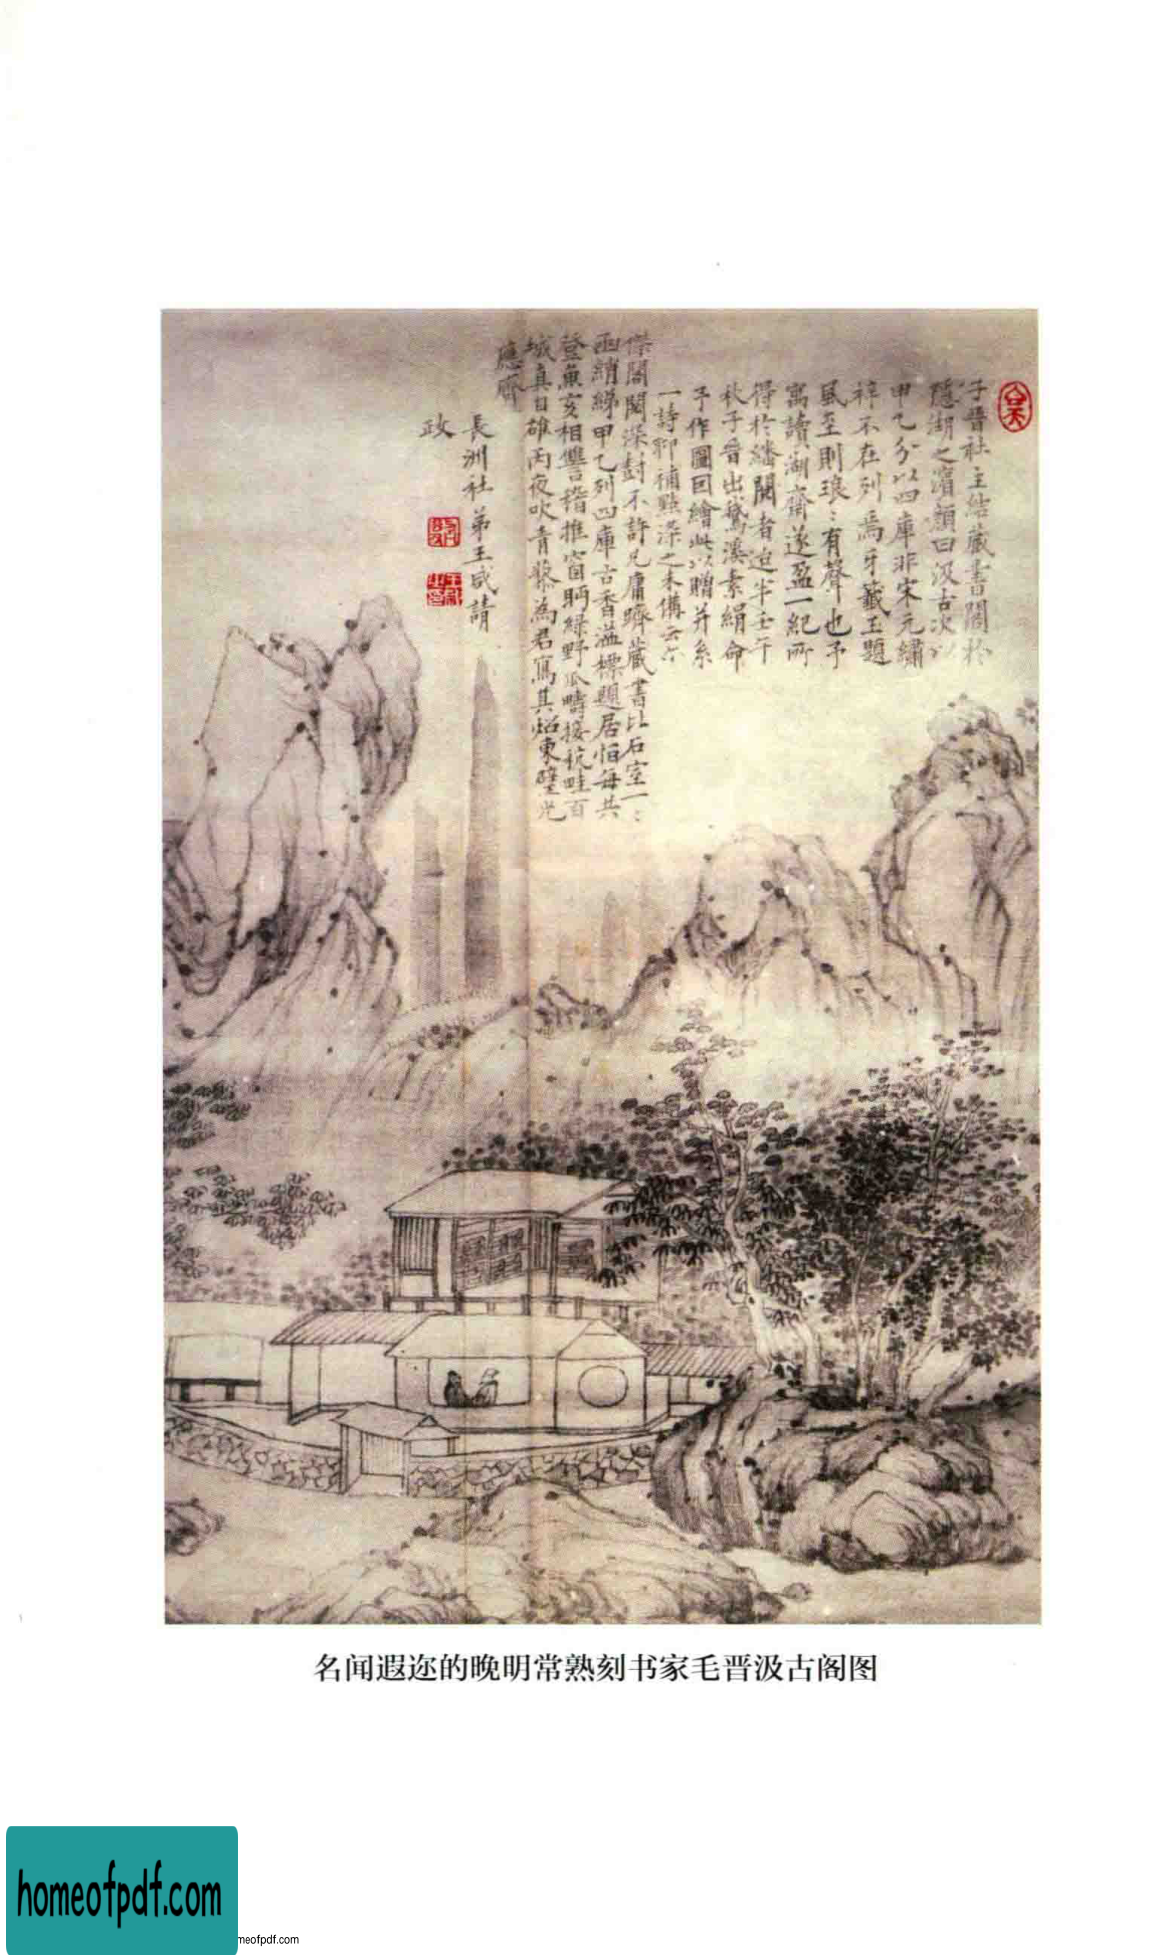 子晉社主結藏書閣於
隱湖之濱顏曰汲古次以
甲乙分以四庫非宋元繡
梓不在列焉牙籤玉題
風至則琅:有聲也予
寓讀湖齋遂盈一紀所
得於繙閱者迨半壬午
秋子晉出鵝溪素絹命
予作圖因繪此以贈并系
一詩聊補點染之未備云尔
傑閣閎深封不許凡庸躋藏書比石室一:
函緗綈甲乙列四庫古香溢標題居恒每共
登魚亥相讐稽推窗眄綠野瓜疇接秔畦百
城真自雄丙夜吹青藜為君寫其焰東壁光
應齊
長洲社弟王咸請
政
名闻遐迩的晚明常熟刻书家毛晋汲古阁图
homeofpdf.com
meofpdf.com